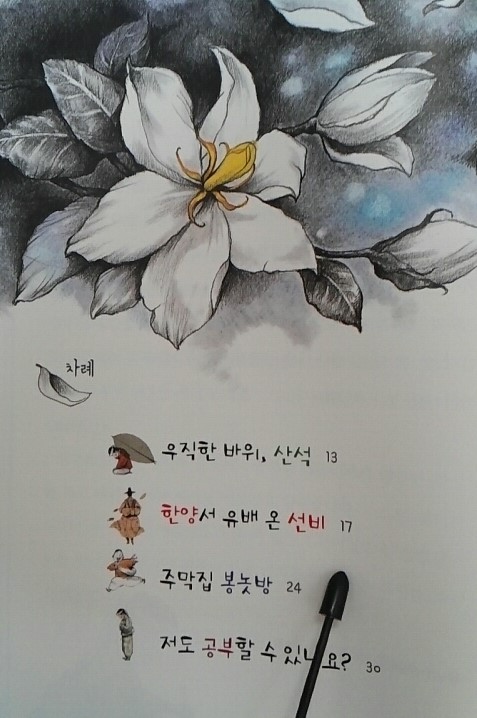 차례
우직한 바위, 산석 13
한양서 유배 온 선비 17
주막집 봉놋방 24
저도 공부할 수 있나요? 30